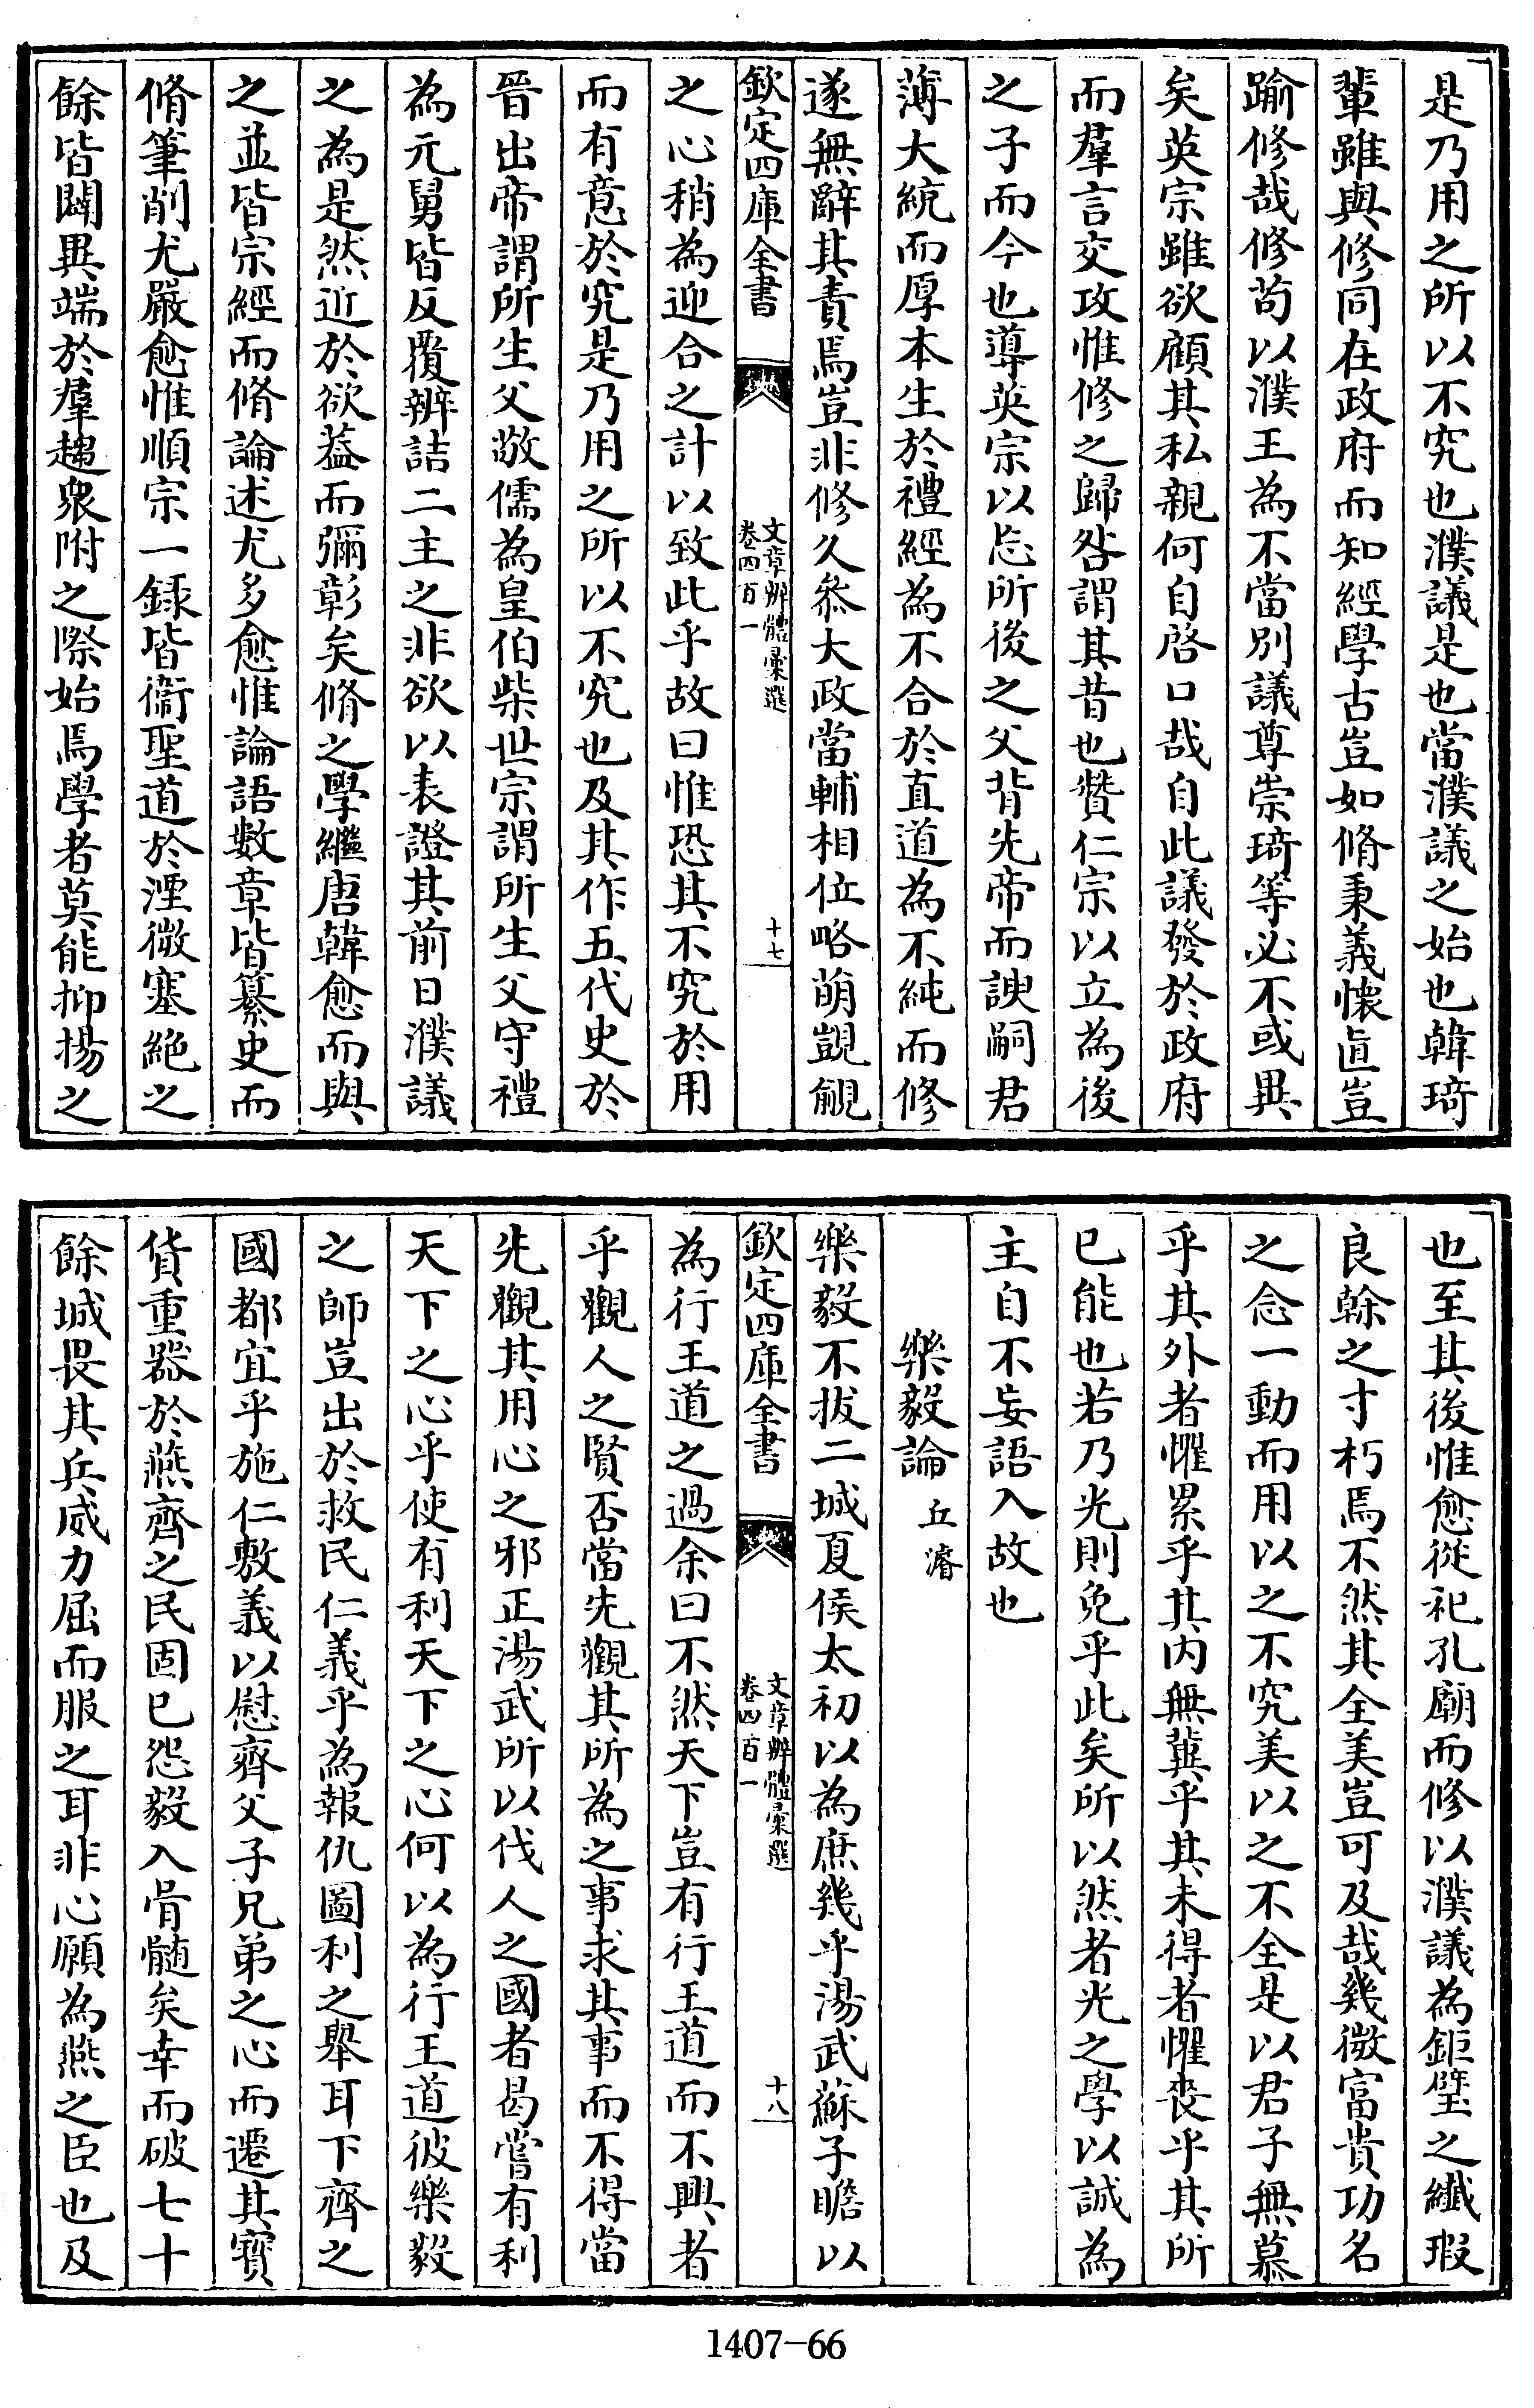 是乃用之所以不究也濮議是也當濮議之始也韓琦
輩雖與修同在政府而知經學古豈如脩秉義懷直豈
踰修哉修苟以濮王為不當别議尊崇琦等必不或異
矣英宗雖欲顧其私親何自啓口哉自此議發於政府
而羣言交攻惟修之歸咎謂其昔也贊仁宗以立為後
之子而今也導英宗以忘所後之父背先帝而諛嗣君
薄大統而厚本生於禮經為不合於直道為不純而修
遂無辭其責焉豈非修久叅大政當輔相位略萌覬覦
欽定四庫全書
文章辨體彙選
卷四百一
十七
之心稍為迎合之計以致此乎故曰惟恐其不究於用
而有意於究是乃用之所以不究也及其作五代史於
晉出帝謂所生父敬儒為皇伯柴世宗謂所生父守禮
為元舅皆反覆辨詰二主之非欲以表證其前日濮議
之為是然近於欲葢而彌彰矣脩之學繼唐韓愈而與
之並皆宗經而脩論述尤多愈惟論語數章皆纂史而
脩筆削尤嚴愈惟順宗一錄皆衞聖道於湮微塞絶之
餘皆闢異端於羣趨衆附之際始焉學者莫能抑揚之
也至其後惟愈從祀孔廟而修以濮議為鉅璧之纎瑕
良榦之寸朽焉不然其全美豈可及哉幾微富貴功名
之念一動而用以之不究美以之不全是以君子無慕
乎其外者懼累乎其内無冀乎其未得者懼喪乎其所
已能也若乃光則免乎此矣所以然者光之學以誠為
主自不妄語入故也
樂毅論 丘濬
樂毅不拔二城夏侯太初以為庶幾乎湯武蘇子瞻以
欽定四庫全書
文章辨體彙選
卷四百一
十八
為行王道之過余曰不然天下豈有行王道而不興者
乎觀人之賢否當先觀其所為之事求其事而不得當
先觀其用心之邪正湯武所以伐人之國者曷嘗有利
天下之心乎使有利天下之心何以為行王道彼樂毅
之師豈出於救民仁義乎為報仇圖利之舉耳下齊之
國都宜乎施仁敷義以慰齊父子兄弟之心而遷其寳
貨重器於燕齊之民固已怨毅入骨髄矣幸而破七十
餘城畏其兵威力屈而服之耳非心願為燕之臣也及
1407-66